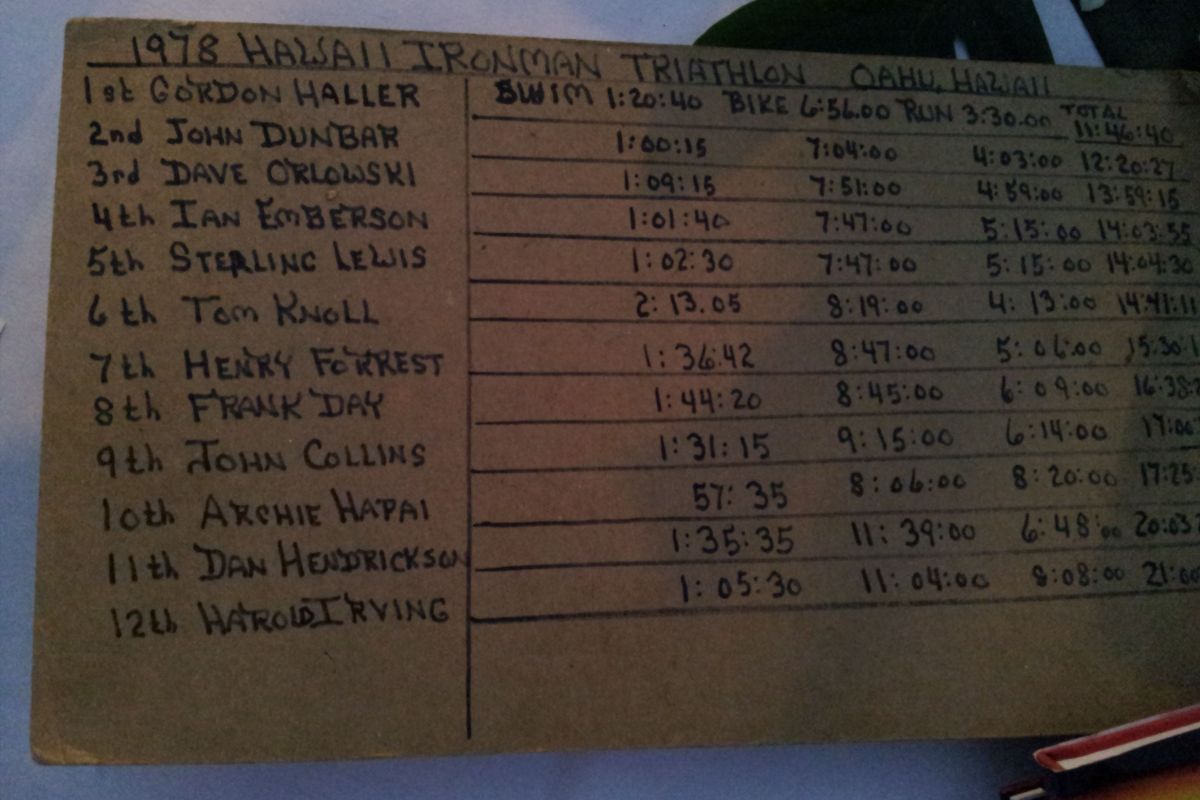 1978 HAWAII IRONMAN TRIATHLON OAHU, HAWAII
1st GORDON HALLER SWIM 1:20:40 BIKE 6:56.00 RUN 3:30.00 TOTAL 11:46:40
2nd JOHN DUNBAR 1:00:15 7:04:00 4:03:00 12:20:27
3rd DAVE ORLOWSKI 1:09:15 7:51:00 4:59:00 13:59:15
4th IAN EMBERSON 1:01:40 7:47:00 5:15:00 14:03:55
5th STERLING LEWIS 1:02:30 7:47:00 5:15:00 14:04:30
6th TOM KNOLL 2:13.05 8:19:00 4:13:00 14:41:11
7th HENRY FORREST 1:36:42 8:47:00 5:06:00 15:30:1
8th FRANK DAY 1:44:20 8:45:00 6:09:00 16:38:
9th JOHN COLLINS 1:31:15 9:15:00 6:14:00 17:00
10th ARCHIE HAPAI 57:35 8:06:00 8:20:00 17:25
11th DAN HENDRICKSON 1:35:35 11:39:00 6:48:00 20:03
12th HAROLD IRVING 1:05:30 11:04:00 8:08:00 21:00